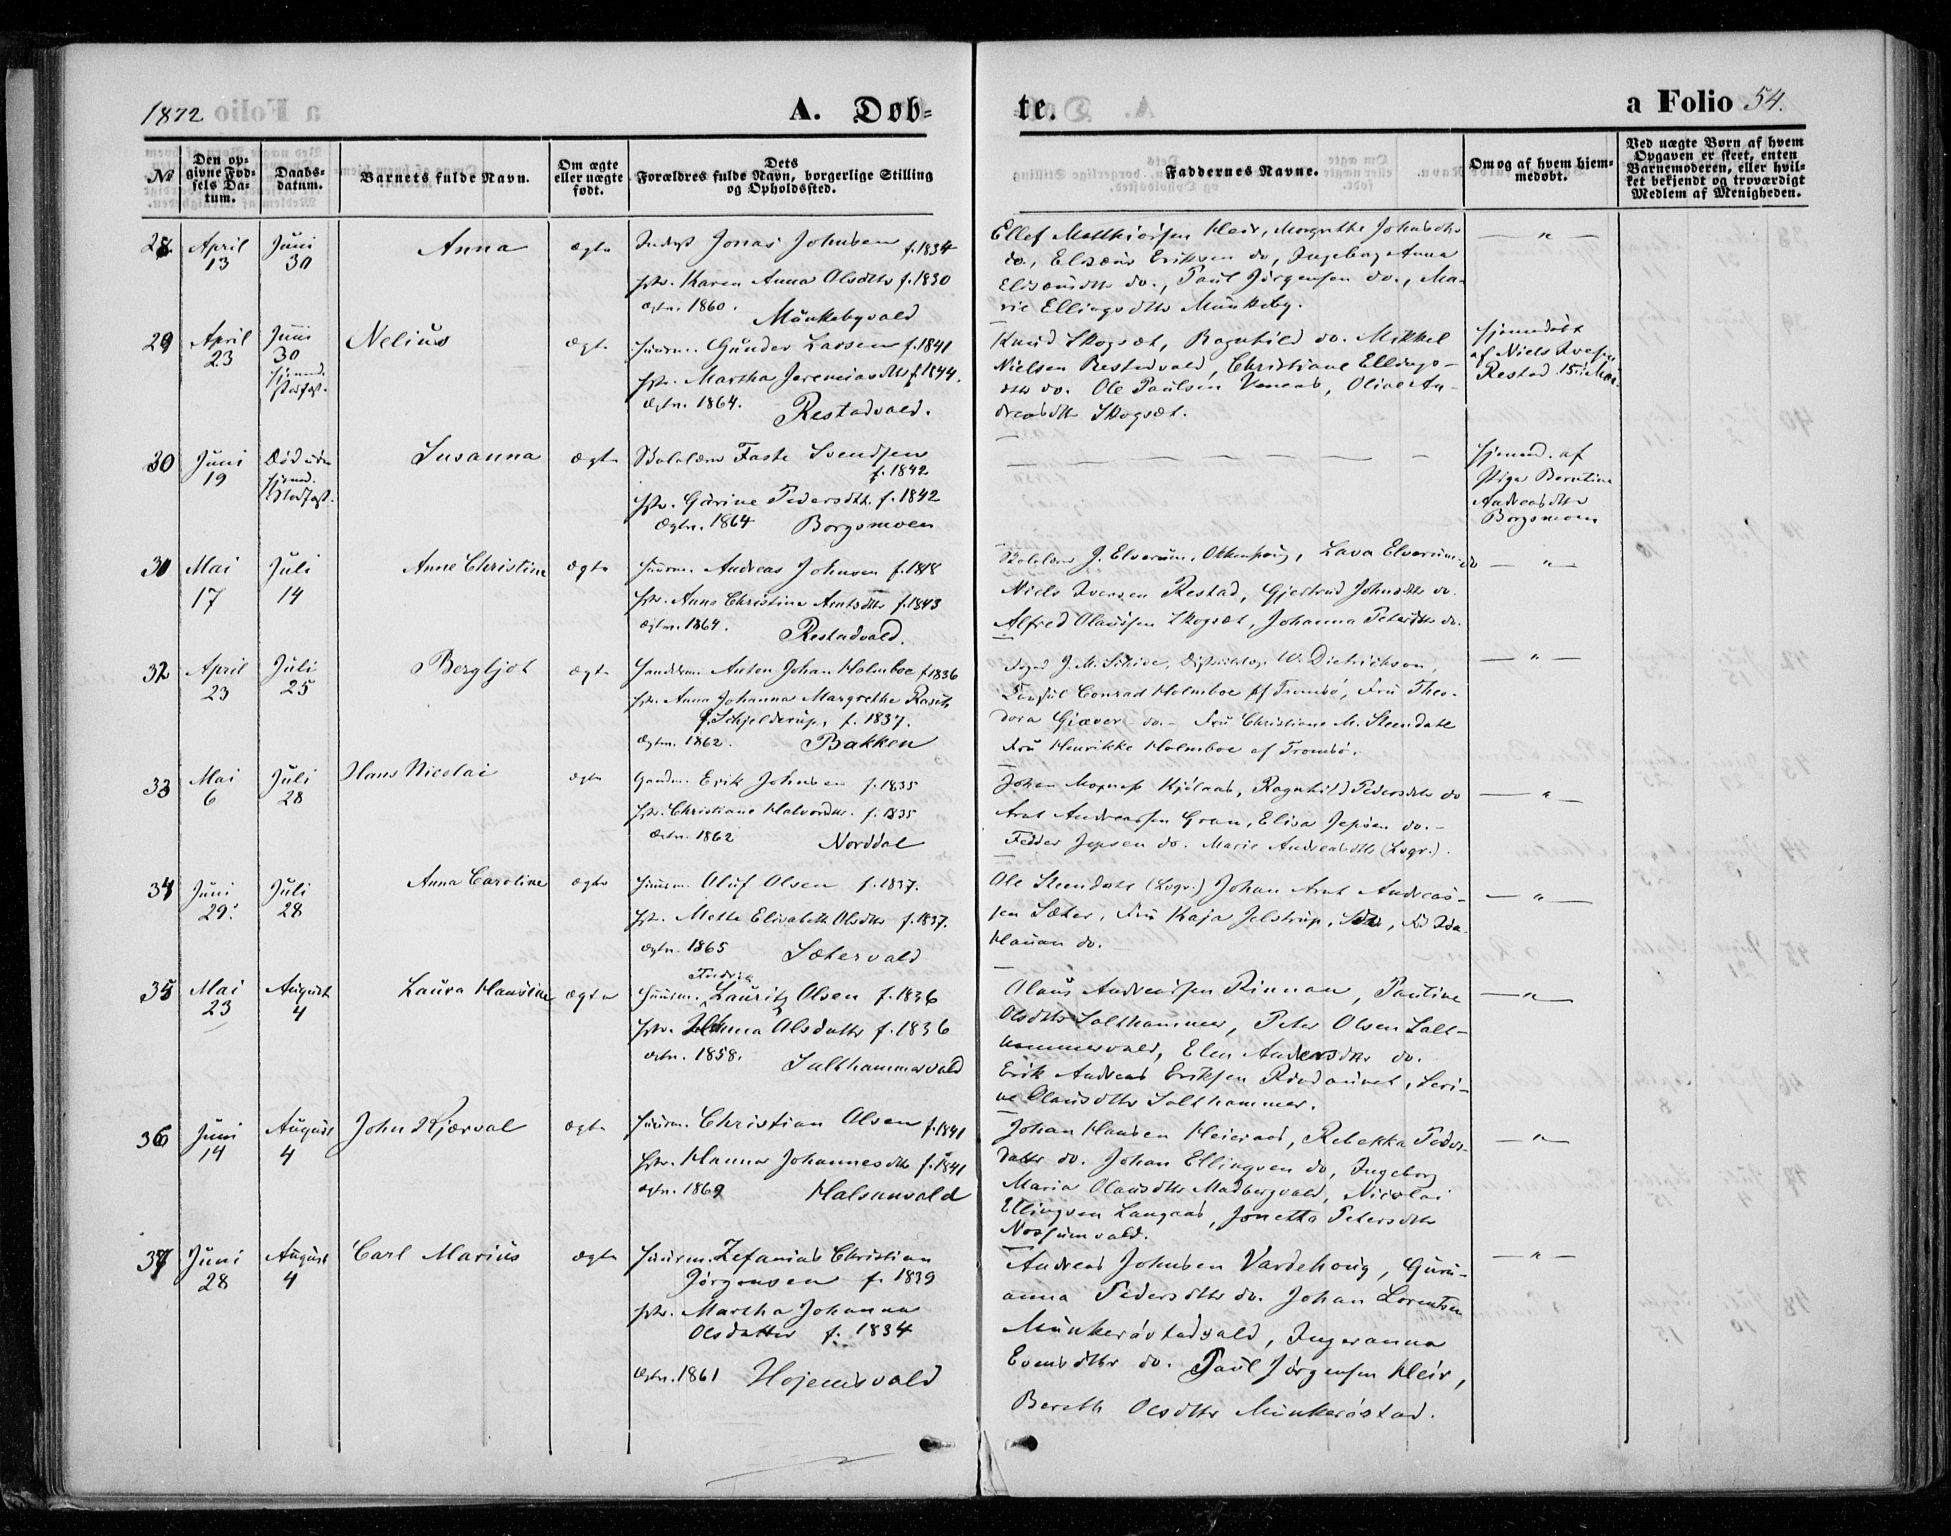 1872
A. Døb-
te.
a Folio 54.
No
Den op-
givne Fød-
sels Da-
tum.
Daabs-
datum.
Barnets fulde Navn.
Om ægte
eller uægte
født.
Dets
Forældres fulde Navn, borgerlige Stilling
og Opholdssted.
Faddernes Navne.
Om og af hvem hjem-
medøbt.
Ved uægte Børn af hvem
Opgaven er skeet, enten
Barnemoderen, eller hvil-
ket bekjendt og troværdigt
Medlem af Menigheden.
28 April 13 Juni 30 Anna ægte
Jonas Johnsen f. 1834
Karen Anna Olsdtr f. 1830
ægtv. 1860. Munkebyvald
Ellef Matthiassen Kleiv, Margrethe Johnsdtr
do., Elisæus Eriksen do, Ingeborg Anna
Elisæusdtr do., Paul Jørgensen do., Ma-
rie Ellingsdtr Munkeby.
29 April 23 Juni 30 Nelius ægte
Huusm. Gunder Larsen f. 1841
Martha Jeremiasdtr f. 1844.
ægtv. 1864. Restadvald.
Knud Skogset, Ragnhild do. Mikkel
Nielsen Restadvald, Christiane Ellings-
dtr do. Ole Paulsen Venaas, Oline An-
dreasdtr Skogset.
Hjemmedøbt
af Niels Iversen
Restad 15 Mai
30 Juni 19 Død
Susanna ægte
Skolelærer Faste Svendsen
f. 1842
Gurine Pedersdtr. f. 1842
ægtv. 1864 Borgsmoen
Hjemmd. af
Pige Berntine
Andreasdtr
Borgsmoen
31 Mai 17 Juli 14 Anne Christine ægte
Huusm. Andreas Johnsen f. 1818
Anne Christine Arntsdtr f. 1843
ægtv. 1864. Restadvald.
Skolelærer J. Elverum, Okkenhaug, Lava Elverum do
Niels Iversen Restad, Gjertrud Johnsdtr do.
Alfred Olaussen Skogset, Johanna Petersdtr do.
32 April 23 Juli 25 Bergljot ægte
Anton Johan Holmboe f. 1836
Anna Johanna Margrethe
f. Schjelderup, f. 1837.
ægtv. 1862. Bakken
Foged J. M. W. Dietrichson,
Consul Conrad Holmboe af Tromsø, Fru Theo-
dora Giæver do. - Fru Christiane M. Steendahl
Fru Henrikke Holmboe af Tromsø.
33 Mai 6 Juli 28 Hans Nicolai ægte
Gaardm. Erik Johnsen f. 1835
Christiane Halvordtr. f. 1835
ægtv. 1862 Norddal
Johan Kjølaas, Ragnhild Pedersdtr do
Arnt Andreassen Gran, Elisa Jepsen do. -
Fedder Jepsen do. Marie Andreasdtr (Logr.).
34 Juni 29. Juli 28 Anna Caroline ægte
Huusm. Oluf Olsen f. 1837.
Mette Elisabeth Olsdtr f. 1837.
ægtv. 1865 Sætervald
Ole Steendahl (Logr.) Johan Arnt Andreas-
sen Sæter, Fru Kaja Jelstrup, Ida
Hauan do.
35 Mai 23 August 4 Laura Hansine ægte
Fredrik
Huusm. Lauritz Olsen f. 1836
Anna Olsdatter f. 1836
ægtv. 1858. Salthammervald
Olaus Andreassen Rinnan, Pauline
Olsdtr Salthammer, Peter Olsen Salt-
hammervald, Elen Andersdtr do.
Erik Andreas Eriksen, Seri-
ne Olausdtr Salthammer.
36 Juni 14 August 4 John Kjerval ægte
Huusm. Christian Olsen f. 1841
Hanna Johannesdtr f. 1841
ægtv. 1869 Halsanvald
Johan Hansen Heieraas, Rebekka Peders-
datter do. Johan Ellingsen do, Ingeborg
Maria Olausdtr Madbergvald, Nicolai
Ellingsen Langaas, Jonetta Petersdtr
Nossumvald.
37 Juni 28 August 4 Carl Marius ægte
Huusm. Zefanias Christian
Jørgensen f. 1839
Martha Johanna
Olsdatter f. 1834
ægtv. 1861 Hojemsvald
Andreas Johnsen Vardehoug, Guru-
anna Pedersdtr do. Johan Lorentsen
Munkerøstadvald, Ingeranna
Evensdtr do. Paul Jørgensen Kleiv,
Bereth Olsdtr Munkerøstad.